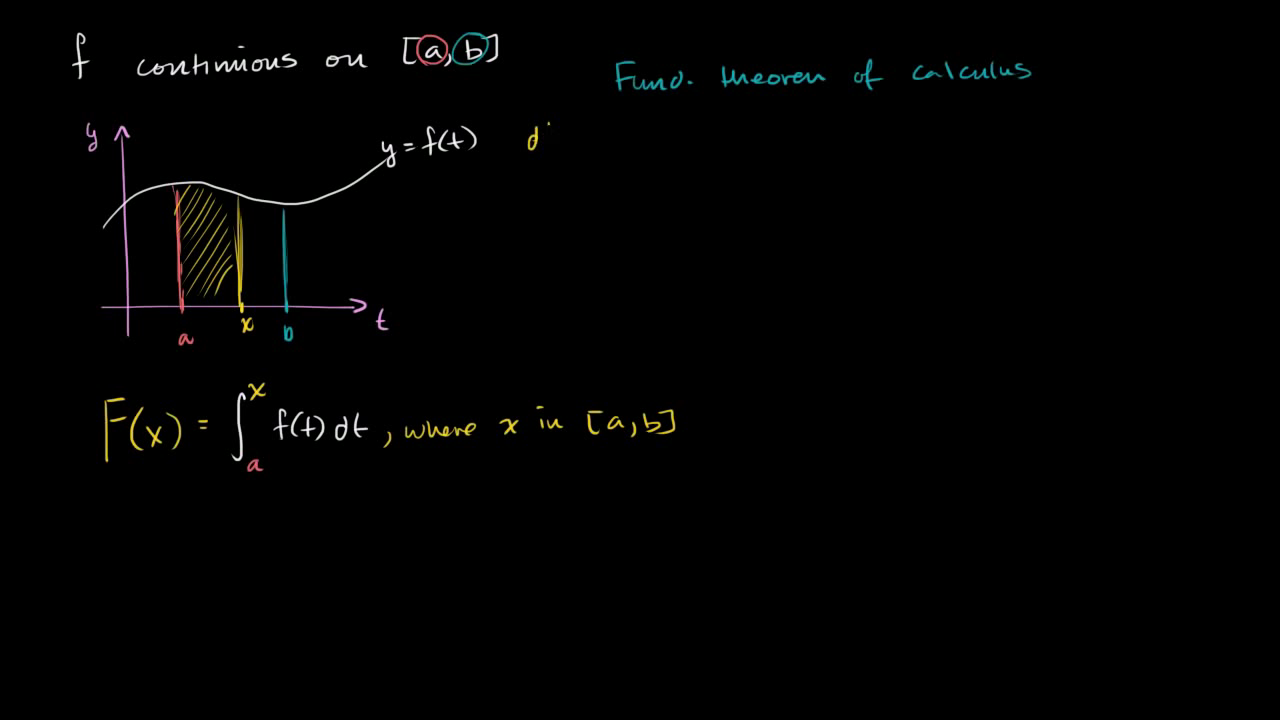 f continuous on [a, b]
Fund. theorem of calculus
y
y = f(t)
d
t
a
x
b
F(x) = ∫ₐˣ f(t) dt, where x in [a, b]